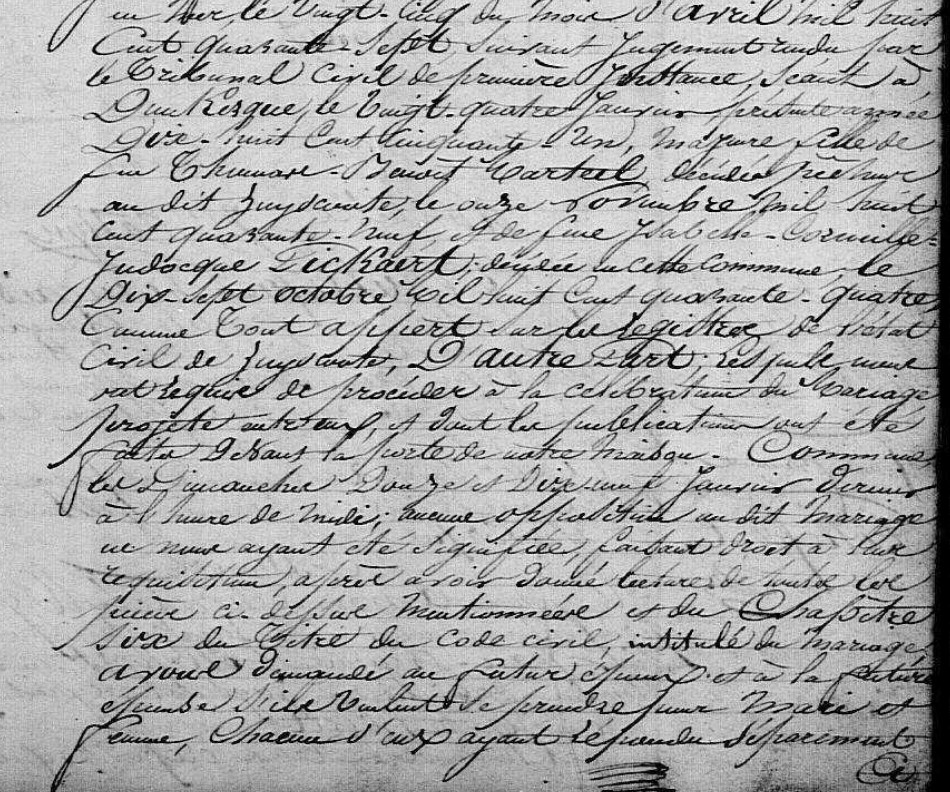 en Mer, le Vingt-cinq du Mois d'avril mil huit
Cent quarante-Sept suivant Jugement rendu par
le Tribunal Civil de première Instance, séant à
Dunkerque, le Vingt-quatre Janvier présente année
Dix-huit Cent Cinquante-Un, Majeure fille de
feu Benoît décédé
au dit Zuydcoote, le onze Novembre Mil huit
cent quarante-Neuf, et de feue Isabelle-Cornille-
Judocque Pickaert, décédée en cette Commune, le
Dix-Sept octobre Mil huit Cent quarante-quatre
Comme Tout appert sur les Registres de l'état
Civil de Zuydcoote, D'autre Part; Lesquels nous
ont Requis de procéder à la célébration du Mariage
projeté entr'eux, et dont les publications ont été
faites Devant la porte de notre Maison-Commune
les Dimanches Douze et Dix neuf Janvier dernier
à l'heure de Midi; aucune opposition au dit Mariage
ne nous ayant été Signifiée, faisant droit à leur
requisition, après avoir donné lecture de toutes les
pièces ci-dessus Mentionnées et du Chapitre
Six du Titre du Code civil, intitulé du Mariage,
avons demandé au futur époux et à la future
épouse s'ils Veulent Se prendre pour Mari et
femme, Chacun d'eux ayant répondu Séparement